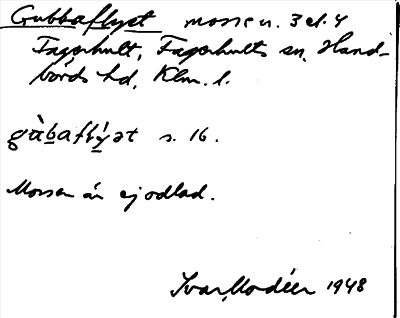 Gubbaflyet mosse n. 3 el. 4
Fagerhult, Fagerhults sn, Hand-
börds hd, Klm. l.
gùbaflýət s. 16.
Mossen är ej odlad.
Ivar Modéer 1948